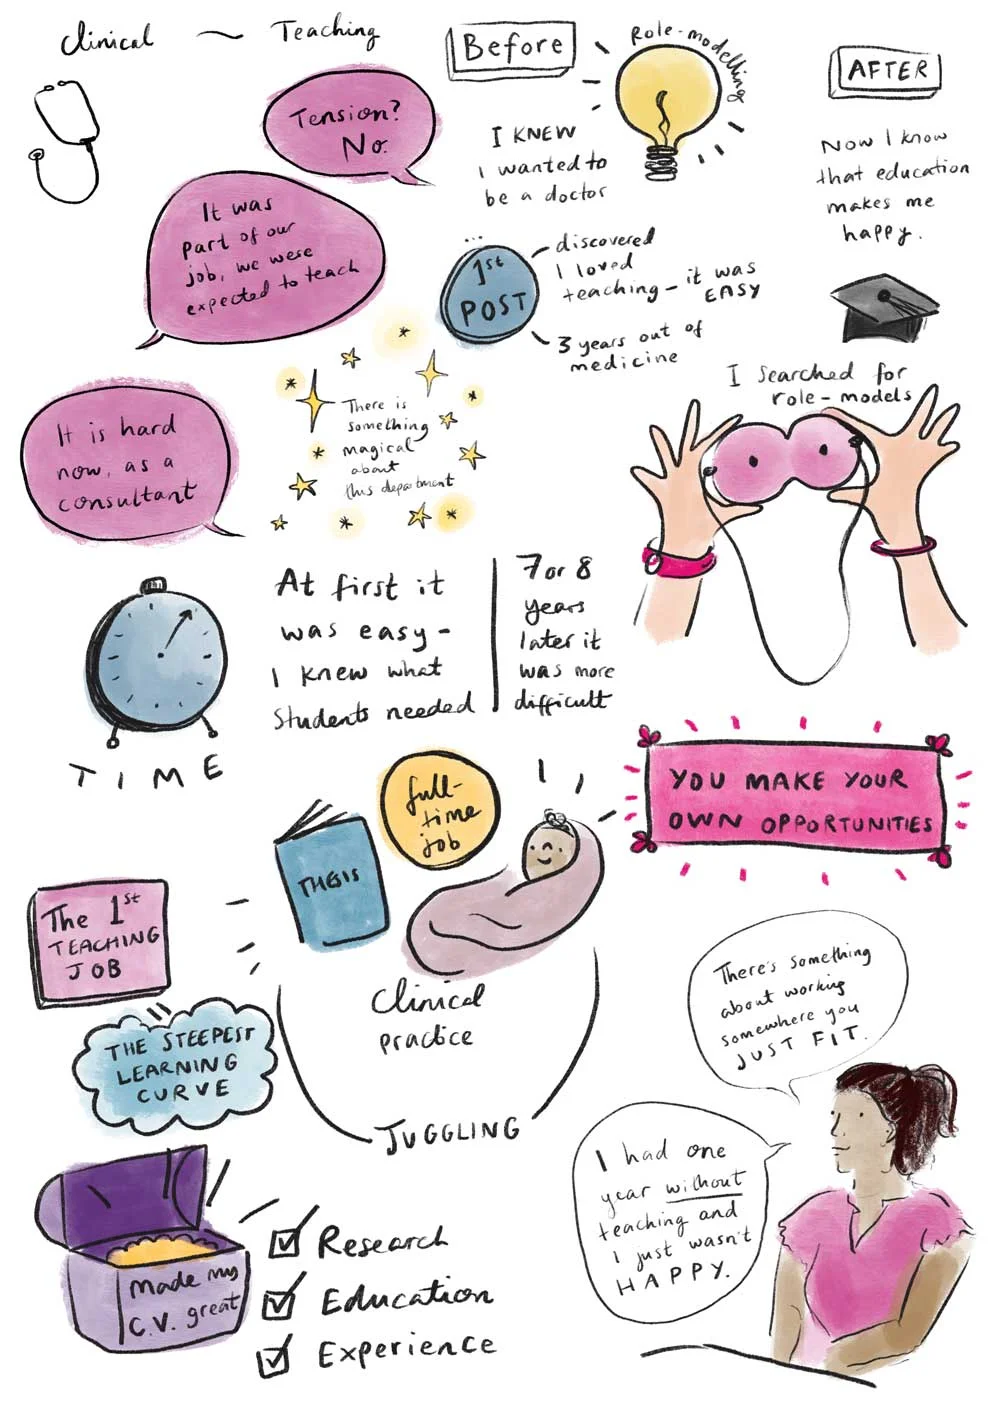 Clinical ~ Teaching
Tension?
No.
It was
part of our
job, we were
expected to teach
It is hard
now, as a
consultant
Before
I KNEW
I wanted to
be a doctor
Role-modelling
AFTER
Now I know
that education
makes me
happy.
1st
POST
discovered
I loved
teaching - it was
EASY
3 years out of
medicine
There is
something
magical
about
this department
I searched for
role-models
TIME
At first it
was easy -
I knew what
Students needed
7 or 8
years
later it
was more
difficult
YOU MAKE YOUR
OWN OPPORTUNITIES
THESIS
full-
time
job
Clinical
practice
JUGGLING
The 1st
TEACHING
JOB
THE STEEPEST
LEARNING
CURVE
made my
C.V. great
Research
Education
Experience
There's something
about working
somewhere you
JUST FIT.
I had one
year without
teaching and
I just wasn't
HAPPY.